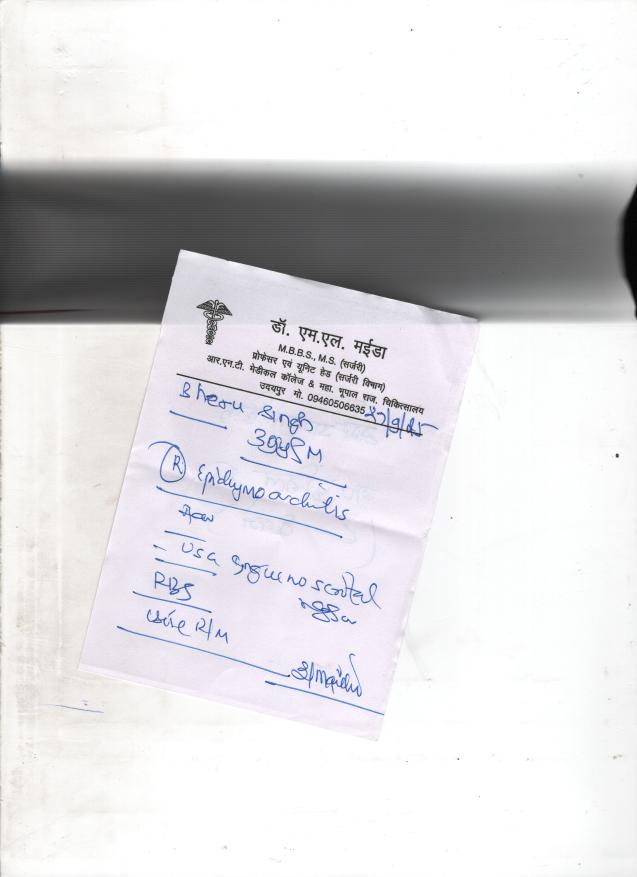 डॉ. एम.एल. मईडा
M.B.B.S., M.S. (सर्जरी)
प्रोफेसर एवं यूनिट हेड (सर्जरी विभाग)
आर.एन.टी. मेडीकल कॉलेज & महा. भूपाल राज. चिकित्सालय
उदयपुर मो. 09460506635
Bheru Singh
R Epidhymoorchitis
- USG Inguinoscrotal
RBS
Urine R/M